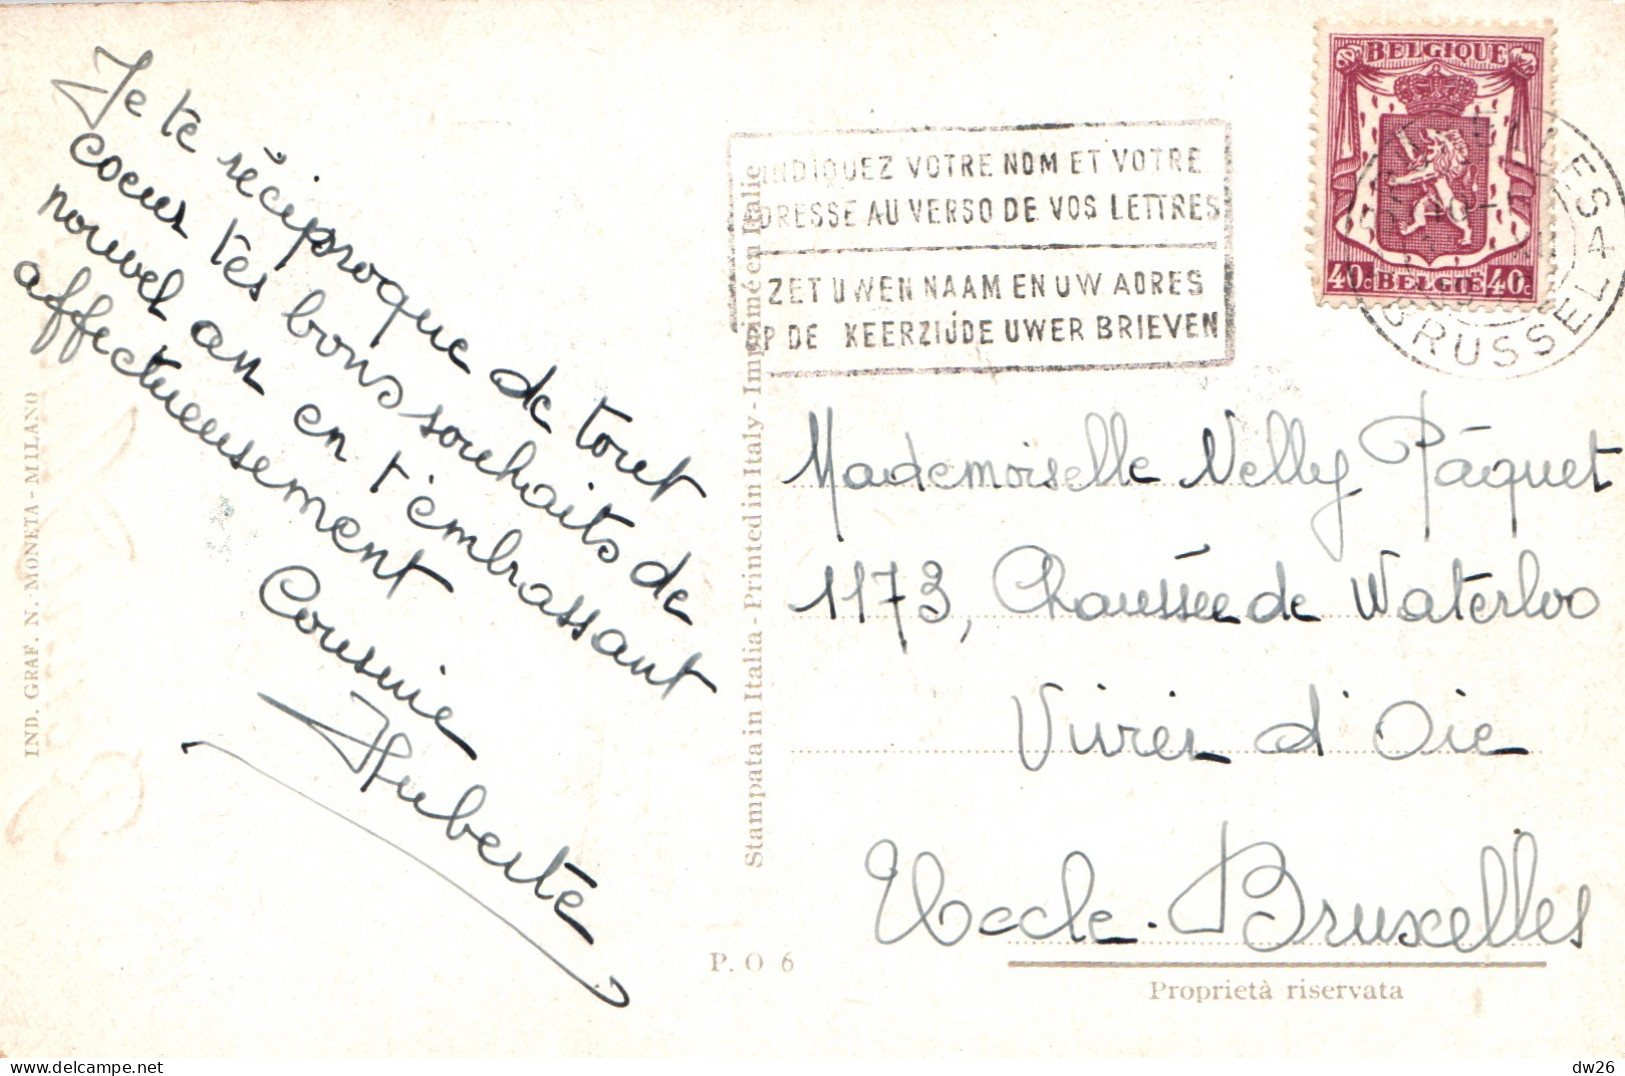 Je te réciproque de tout
coeur tes bons souhaits de
nouvel an en t'embrassant
affectueusement
Cousine
Huberte
IND. GRAF. N. MONETA - MILANO
Stampata in Italia - Printed in Italy - Imprimé en Italie
P. O 6
INDIQUEZ VOTRE NOM ET VOTRE
ADRESSE AU VERSO DE VOS LETTRES
ZET UWEN NAAM EN UW ADRES
OP DE KEERZIJDE UWER BRIEVEN
BELGIQUE
40c BELGIË 40c
BRUSSEL 4
Mademoiselle Nelly Pâquet
1173, Chaussée de Waterloo
Vivier d'Oie
Uccle-Bruxelles
Proprietà riservata
dw26